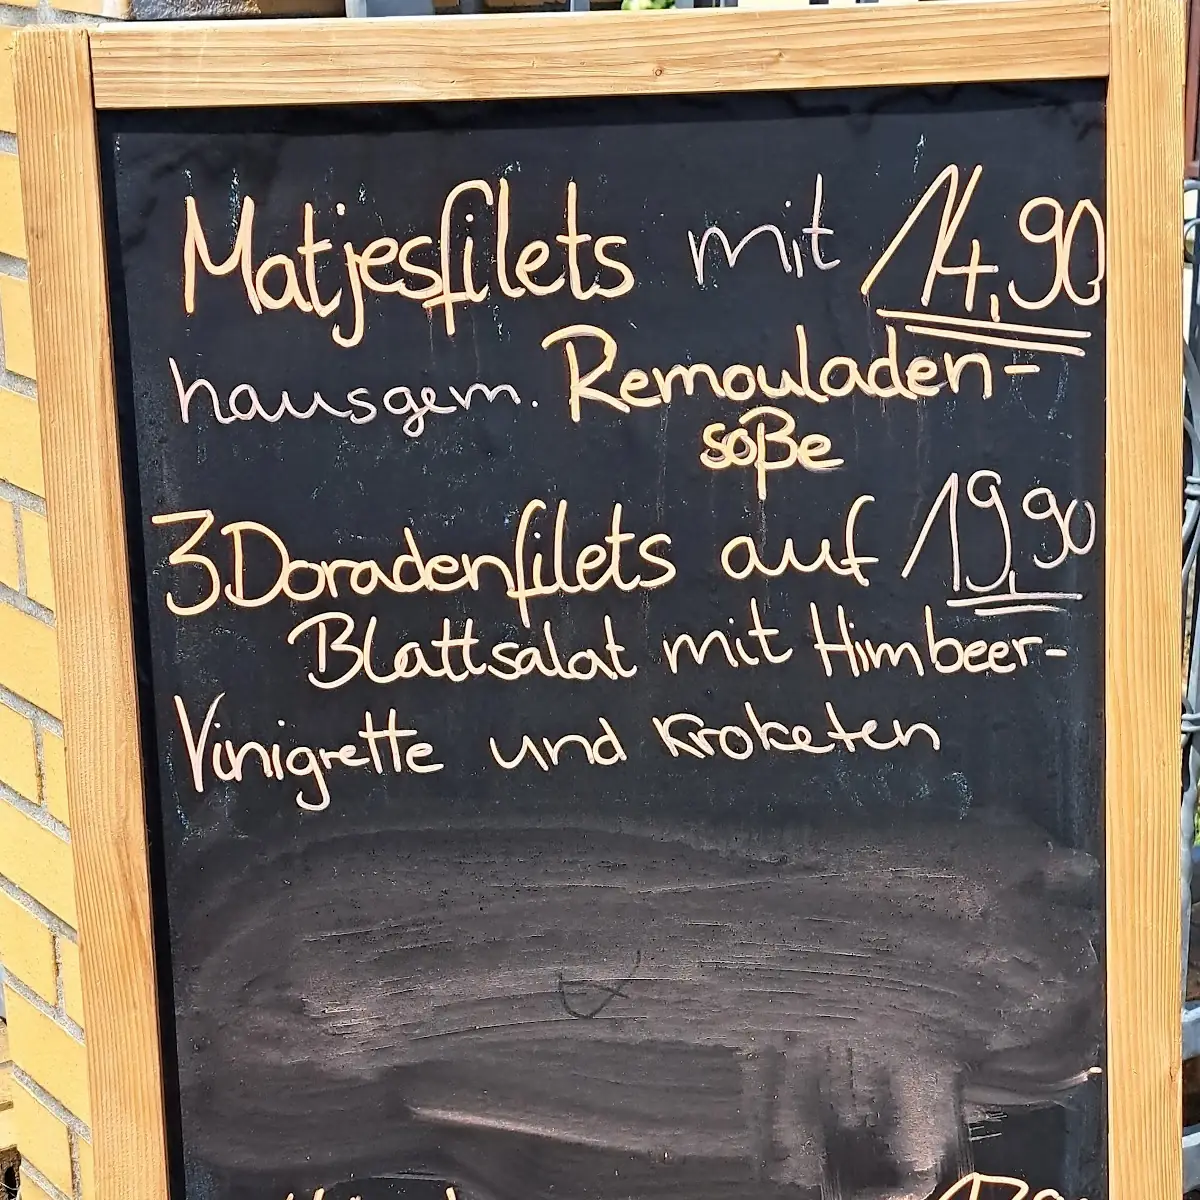 Matjesfilets mit 14,90
hausgem. Remouladen-
soße
3 Doradenfilets auf 19,90
Blattsalat mit Himbeer-
Vinigrette und Kroketen